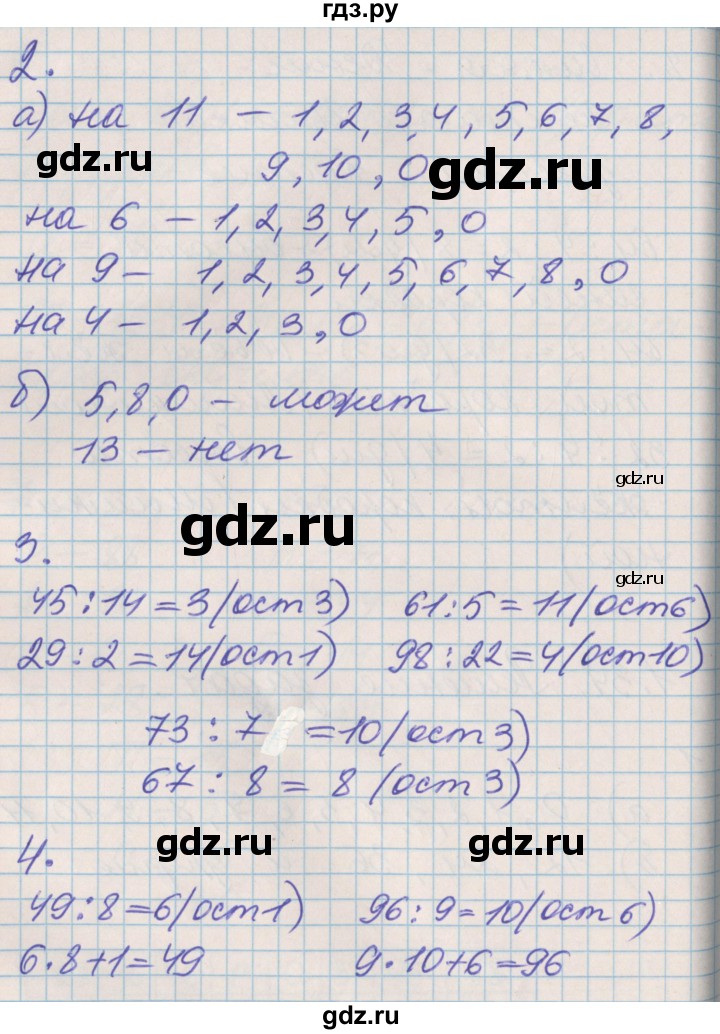 гдз.ру
2.
а) на 11 – 1, 2, 3, 4, 5, 6, 7, 8,
9, 10, 0
gdz.ru
gdz.ru
на 6 – 1, 2, 3, 4, 5, 0
на 9 – 1, 2, 3, 4, 5, 6, 7, 8, 0
на 4 – 1, 2, 3, 0
б) 5, 8, 0 – может
13 – нет
gdz.ru
gdz.ru
3.
gdz.ru
45 : 14 = 3 (ост 3) 61 : 5 = 11 (ост 6)
29 : 2 = 14 (ост 1) 98 : 22 = 4 (ост 10)
73 : 7 = 10 (ост 3)
67 : 8 = 8 (ост 3)
4.
gdz.ru
gdz.ru
49 : 8 = 6 (ост 1) 96 : 9 = 10 (ост 6)
6 · 8 + 1 = 49 9 · 10 + 6 = 96
gdz.ru